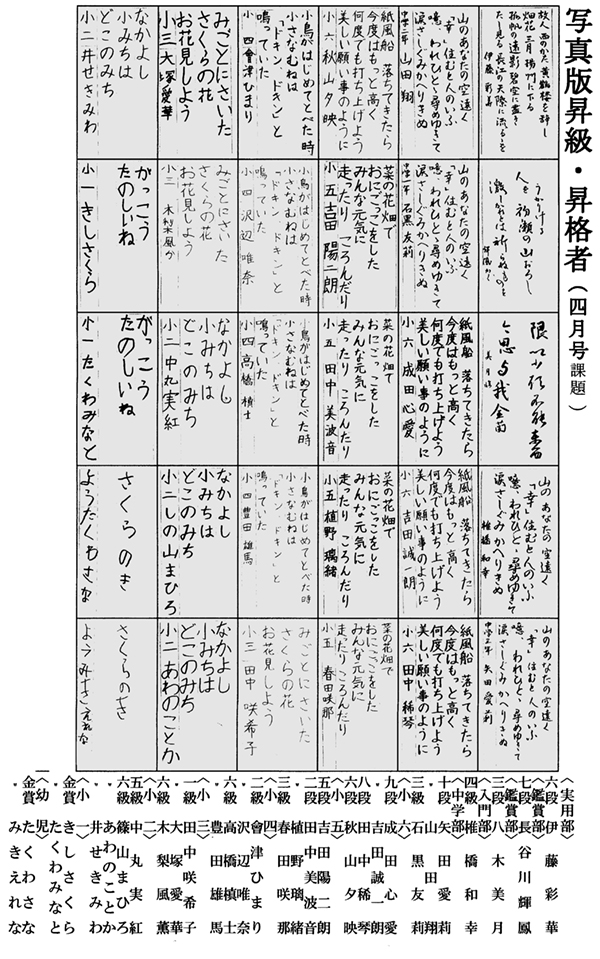 写真版昇級・昇格者（四月号課題）
故人西のかた黄鶴楼を辞し
烟花三月揚州に下る
孤帆の遠影碧空に尽き
ただ見る長江の天際に流るるを
伊藤彩華
山のあなたの空遠く
「幸」住むと人のいふ
噫、われひとと尋めゆきて
涙さしぐみかへりきぬ
中学二年 山田 翔
紙風船 落ちてきたら
今度はもっと高く
何度でも打ち上げよう
美しい願い事のように
小六 秋山夕映
小鳥がはじめてとべた時
小さなむねは
「ドキン、ドキン」と
鳴っていた
小四 會津ひまり
みごとにさいた
さくらの花
お花見しよう
小三 大塚愛華
なかよし
小みちは
どこのみち
小二 井せきみわ
うかりける
人を初瀬の山おろし
激しかれとは祈らぬものを
輝鳳かく
山のあなたの空遠く
「幸」住むと人のいふ
噫、われひとと尋めゆきて
涙さしぐみかへりきぬ
中学一年 石黒友莉
菜の花畑で
おにごっこをした
みんな元気に
走ったり ころんだり
小五 吉田陽二朗
小鳥がはじめてとべた時
小さなむねは
「ドキン、ドキン」と
鳴っていた
小四 沢辺唯奈
みごとにさいた
さくらの花
お花見しよう
小三 木梨風か
がっこう
たのしいね
小一 きしさくら
紙風船 落ちてきたら
今度はもっと高く
何度でも打ち上げよう
美しい願い事のように
小六 成田心愛
菜の花畑で
おにごっこをした
みんな元気に
走ったり ころんだり
小五 田中美波音
小鳥がはじめてとべた時
小さなむねは
「ドキン、ドキン」と
鳴っていた
小四 高橋槙士
なかよし
小みちは
どこのみち
小二 中丸実紅
がっこう
たのしいね
小一 たくわみなと
山のあなたの空遠く
「幸」住むと人のいふ
噫、われひとと尋めゆきて
涙さしぐみかへりきぬ
椎橋和幸
紙風船 落ちてきたら
今度はもっと高く
何度でも打ち上げよう
美しい願い事のように
小六 吉田誠一朗
菜の花畑で
おにごっこをした
みんな元気に
走ったり ころんだり
小五 植野璃緒
小鳥がはじめてとべた時
小さなむねは
「ドキン、ドキン」と
鳴っていた
小四 豊田雄馬
なかよし
小みちは
どこのみち
小二 しの山まひろ
さくらのき
ようたくわさな
山のあなたの空遠く
「幸」住むと人のいふ
噫、われひとと尋めゆきて
涙さしぐみかへりきぬ
中学三年 矢田愛莉
紙風船 落ちてきたら
今度はもっと高く
何度でも打ち上げよう
美しい願い事のように
小六 田中稀琴
菜の花畑で
おにごっこをした
みんな元気に
走ったり ころんだり
小五 春田咲那
みごとにさいた
さくらの花
お花見しよう
小三 田中咲希子
なかよし
小みちは
どこのみち
小二 あわのことか
さくらのき
ようみきえれな
〈実用部〉
六段 伊藤彩華
〈鑑賞部〉
七段 長谷川輝鳳
〈鑑賞部〉
三段 八木美月
〈入門部〉
四級 椎橋和幸
〈中学部〉
十段 矢田愛莉
〃 山田翔
三級 石黒友莉
〈小六〉
九段 成田心愛
〃 吉田誠一朗
八段 田中稀琴
六段 秋山夕映
〈小五〉
二段 吉田陽二朗
〃 田中美波音
〃 植野璃緒
三級 春田咲那
〈小四〉
二級 會津ひまり
〃 沢辺唯奈
六級 高橋槙士
〃 豊田雄馬
〈小三〉
一級 田中咲希子
〃 大塚愛華
六級 木梨風薫
〈小二〉
五級 中丸実紅
六級 篠山まひろ
〃 あわのことか
〃 井せきみわ
〈小一〉
金賞 きしさくら
〃 たくわみなと
〈幼児〉
金賞 たくわさな
〃 みきえれな